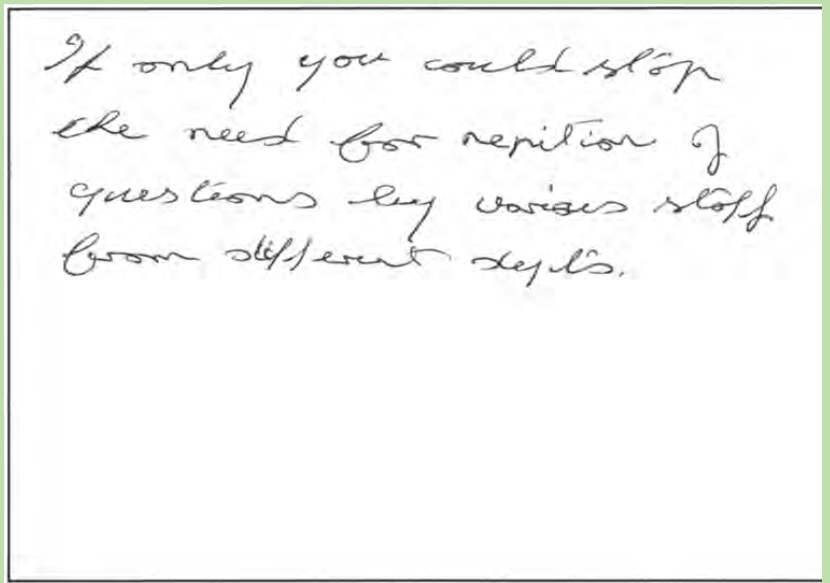 If only you could stop
the need for repition of
questions by various staff
from different depts.